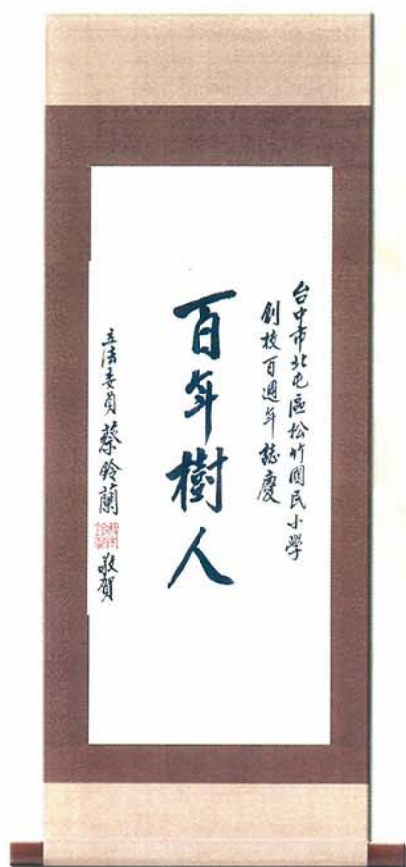 台中市北屯區松竹國民小學
創校百週年誌慶
百年樹人
立法委員蔡鈴蘭敬賀